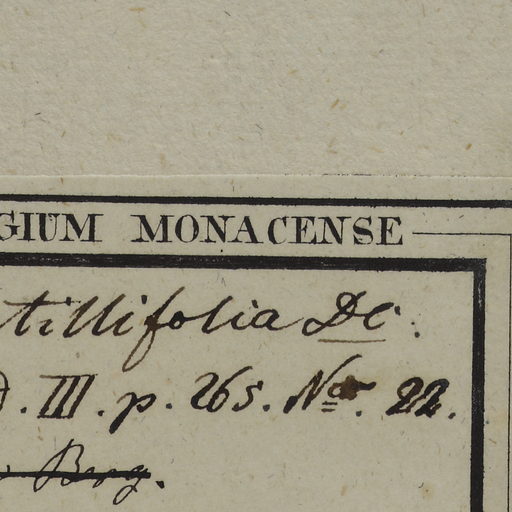 GIUM MONACENSE
tillifolia DC.
. III. p. 265. Nro. 22.
Berg.